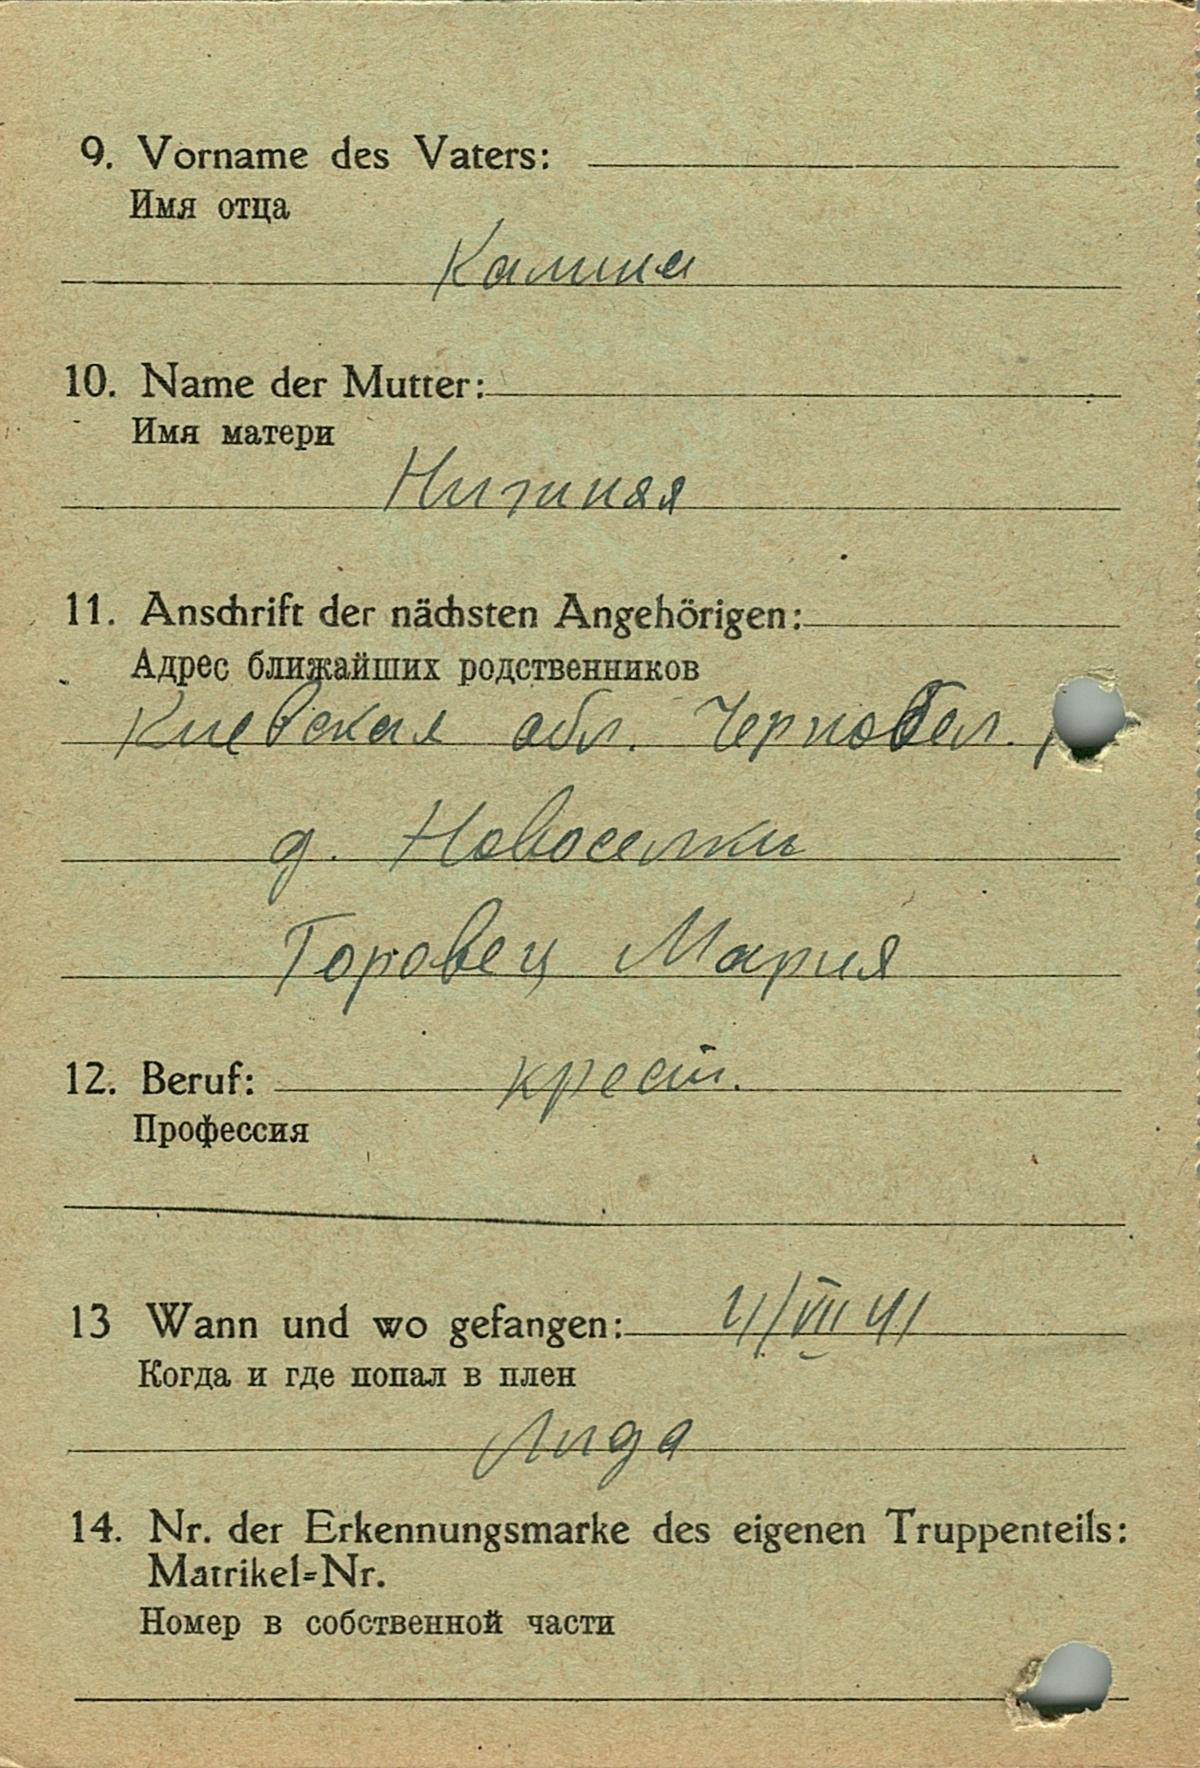 9. Vorname des Vaters:
Имя отца
Калина
10. Name der Mutter:
Имя матери
11. Anschrift der nächsten Angehörigen:
Адрес ближайших родственников
Киевская обл. Чернобел.
д. Новоселки
Горовец Мария
12. Beruf: крест.
Профессия
13 Wann und wo gefangen: 4/VIII 41
Когда и где попал в плен
Лида
14. Nr. der Erkennungsmarke des eigenen Truppenteils:
Matrikel=Nr.
Номер в собственной части